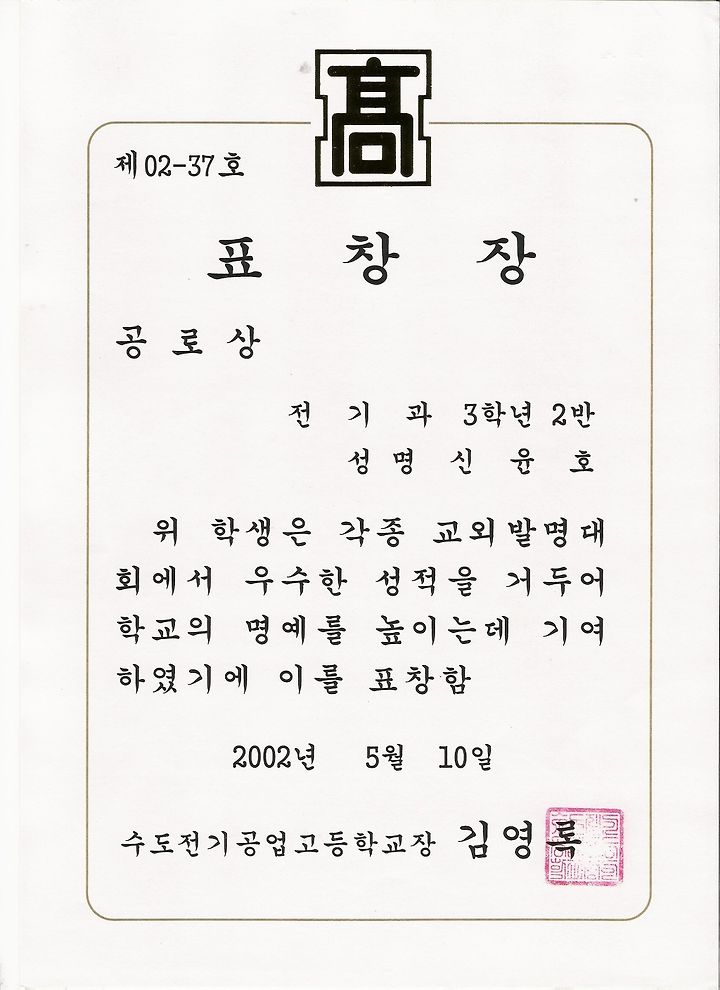 高
제 02-37 호
표 창 장
공 로 상
전 기 과 3학년 2반
성 명 신 윤 호
위 학생은 각종 교외발명대
회에서 우수한 성적을 거두어
학교의 명예를 높이는데 기여
하였기에 이를 표창함
2002년 5월 10일
수도전기공업고등학교장 김영록